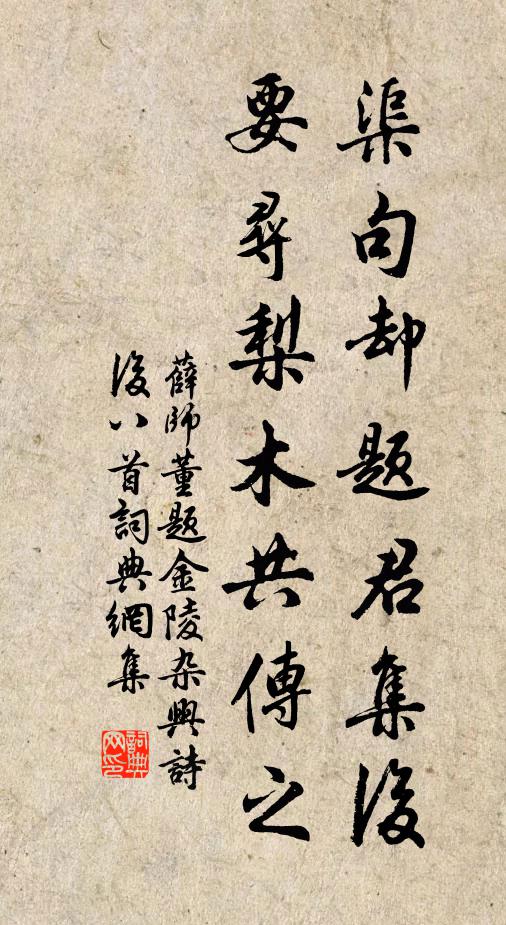 渠句却題君集後
要尋梨木共傳之
薛師董題金陵杂興詩
後八首詞典網集
詞典
网印